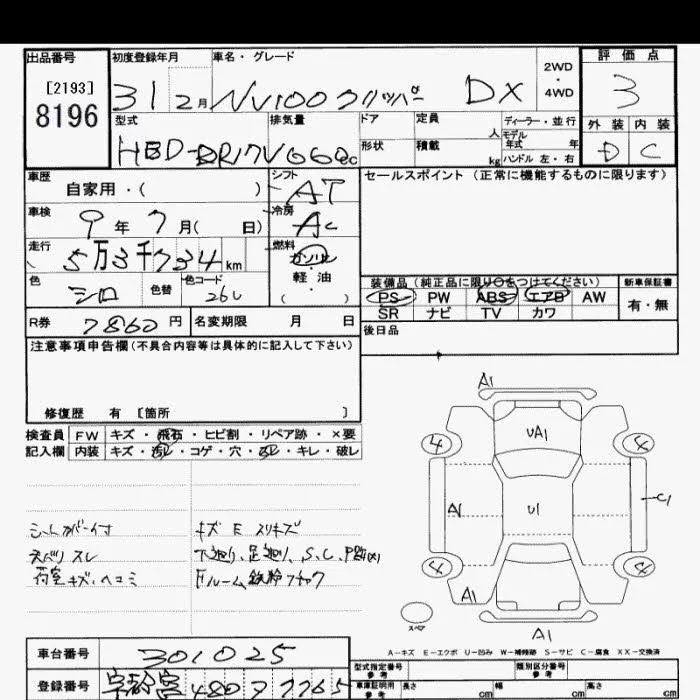 出品番号
[2193]
8196
初度登録年月
31 2月
車名・グレード
NV100クリッパー DX
2WD
・
4WD
評価点
3
外装 内装
D C
型式
HBD-DR17V
排気量
660cc
ドア
形状
定員
人
積載
kg
ディーラー・並行
モデル
年式 年
ハンドル 左・右
車歴
自家用・( )
シフト
AT
車検
9年7月( 日)
冷房
AC
走行
5万3千734km
燃料
ガソリン
・
軽油
( )
色
シロ
色替
色コード
26U
R券
7860円
名変期限 月 日
セールスポイント(正常に機能するものに限ります)
装備品(純正品に限り○をつけてください)
PS PW ABS エアB AW
SR ナビ TV カワ
新車保証書
有・無
後日品
注意事項申告欄(不具合内容等は具体的に記入して下さい)
修復歴 有 [箇所 ]
検査員 FW キズ・飛石・ヒビ割・リペア跡・×要
記入欄 内装 キズ・汚レ・コゲ・穴・スレ・キレ・破レ
シートカバー付
天ベリ スレ
荷室キズ、ヘコミ
キズ E スリキズ
下廻り、足廻り、S、C、P
Fルーム鉄粉フチャク
A1
UA1
4 4
A1
U1
C1
4 4
A1
A1
スペア
A-キズ E-エクボ U-凹み W-補修跡 S-サビ C-腐食 XX-交換済
車台番号
301025
登録番号
宇都宮 480 ヲ 7765
型式指定番号
参考
類別区分番号
参考
車庫証明用
参考
長さ cm
幅 cm
高さ cm